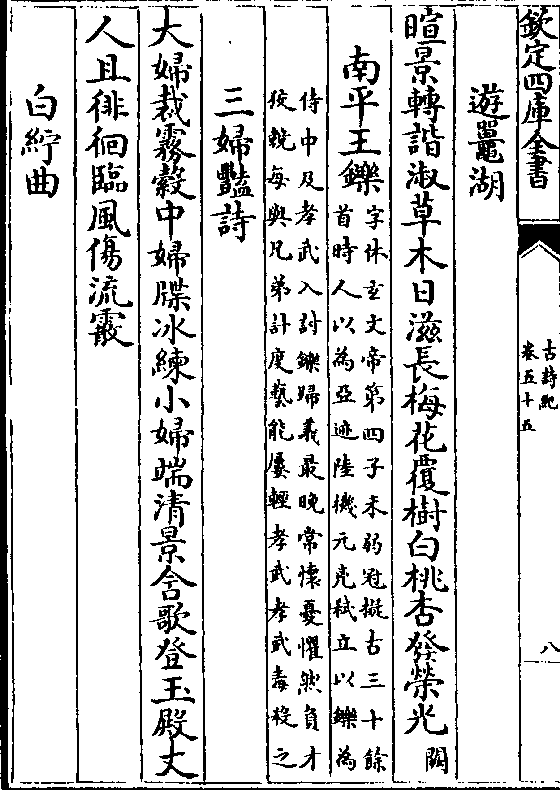 欽定四庫全書
古詩紀
卷五十五
八
遊鼉湖
暄景轉諧淑草木日滋長梅花覆樹白桃杏發榮光闕
南平王鑠
字休玄文帝第四子未弱冠擬古三十餘
首時人以為亞迹陸機元兇弒立以鑠為
侍中及孝武入討鑠歸義最晚常懷憂懼然負才
狡競每與兄弟計度藝能屢輕孝武孝武毒殺之
三婦豔詩
大婦裁霧縠中婦牒冰練小婦端清景含歌登玉殿丈
人且徘徊臨風傷流霰
白紵曲